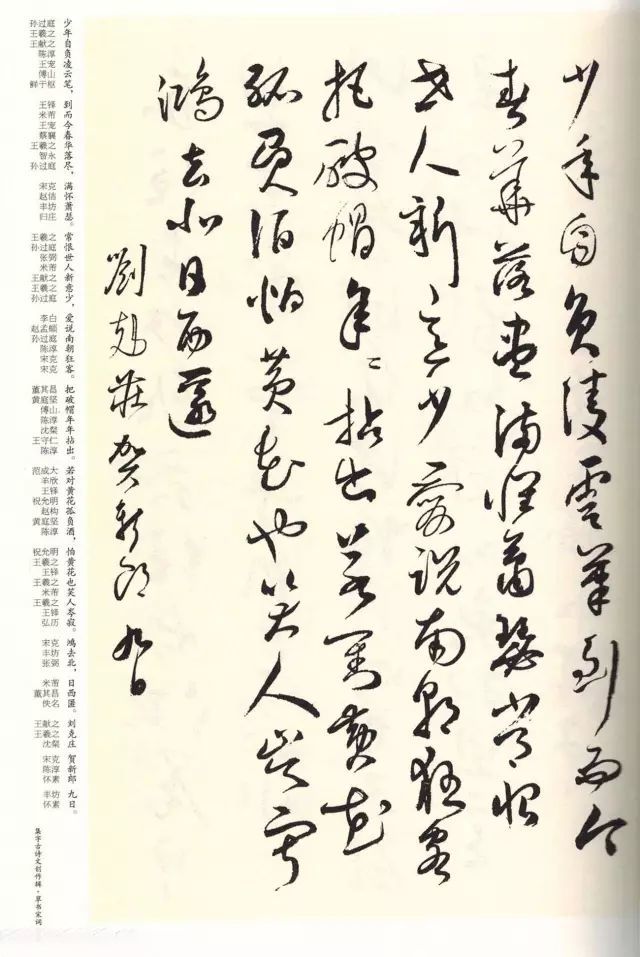 少年自負凌雲筆到而今
春華落盡滿懷蕭瑟常恨
世人新意少愛說南朝狂客
把破帽年〻拈出若對黃花
孤負酒怕黃花也笑人岑寂
鴻去北日西匿
劉克莊賀新郎九日
少年自负凌云笔，到而今春华落尽，满怀萧瑟。常恨世人新意少，爱说南朝狂客。把破帽年年拈出。若对黄花孤负酒，怕黄花也笑人岑寂。鸿去北，日西匿。刘克庄 贺新郎 九日。
孙过庭
王羲之
王献之
陈淳
王宠
傅山
鲜于枢
王铎
米芾
王宠
蔡襄
王羲之
智永
孙过庭
宋克
赵佶
丰坊
归庄
王羲之
孙过庭
张弼
米芾
王献之
王羲之
孙过庭
李白
赵孟頫
孙过庭
陈淳
宋克
宋克
董其昌
黄庭坚
傅山
陈淳
沈粲
王守仁
陈淳
范成大
羊欣
王铎
祝允明
赵构
黄庭坚
陈淳
祝允明
王羲之
王铎
王羲之
米芾
王羲之
王铎
弘历
宋克
丰坊
张弼
米芾
董其昌
佚名
王献之
王羲之
沈粲
宋克
陈淳
怀素
丰坊
怀素
集字古诗文创作辑·草书宋词